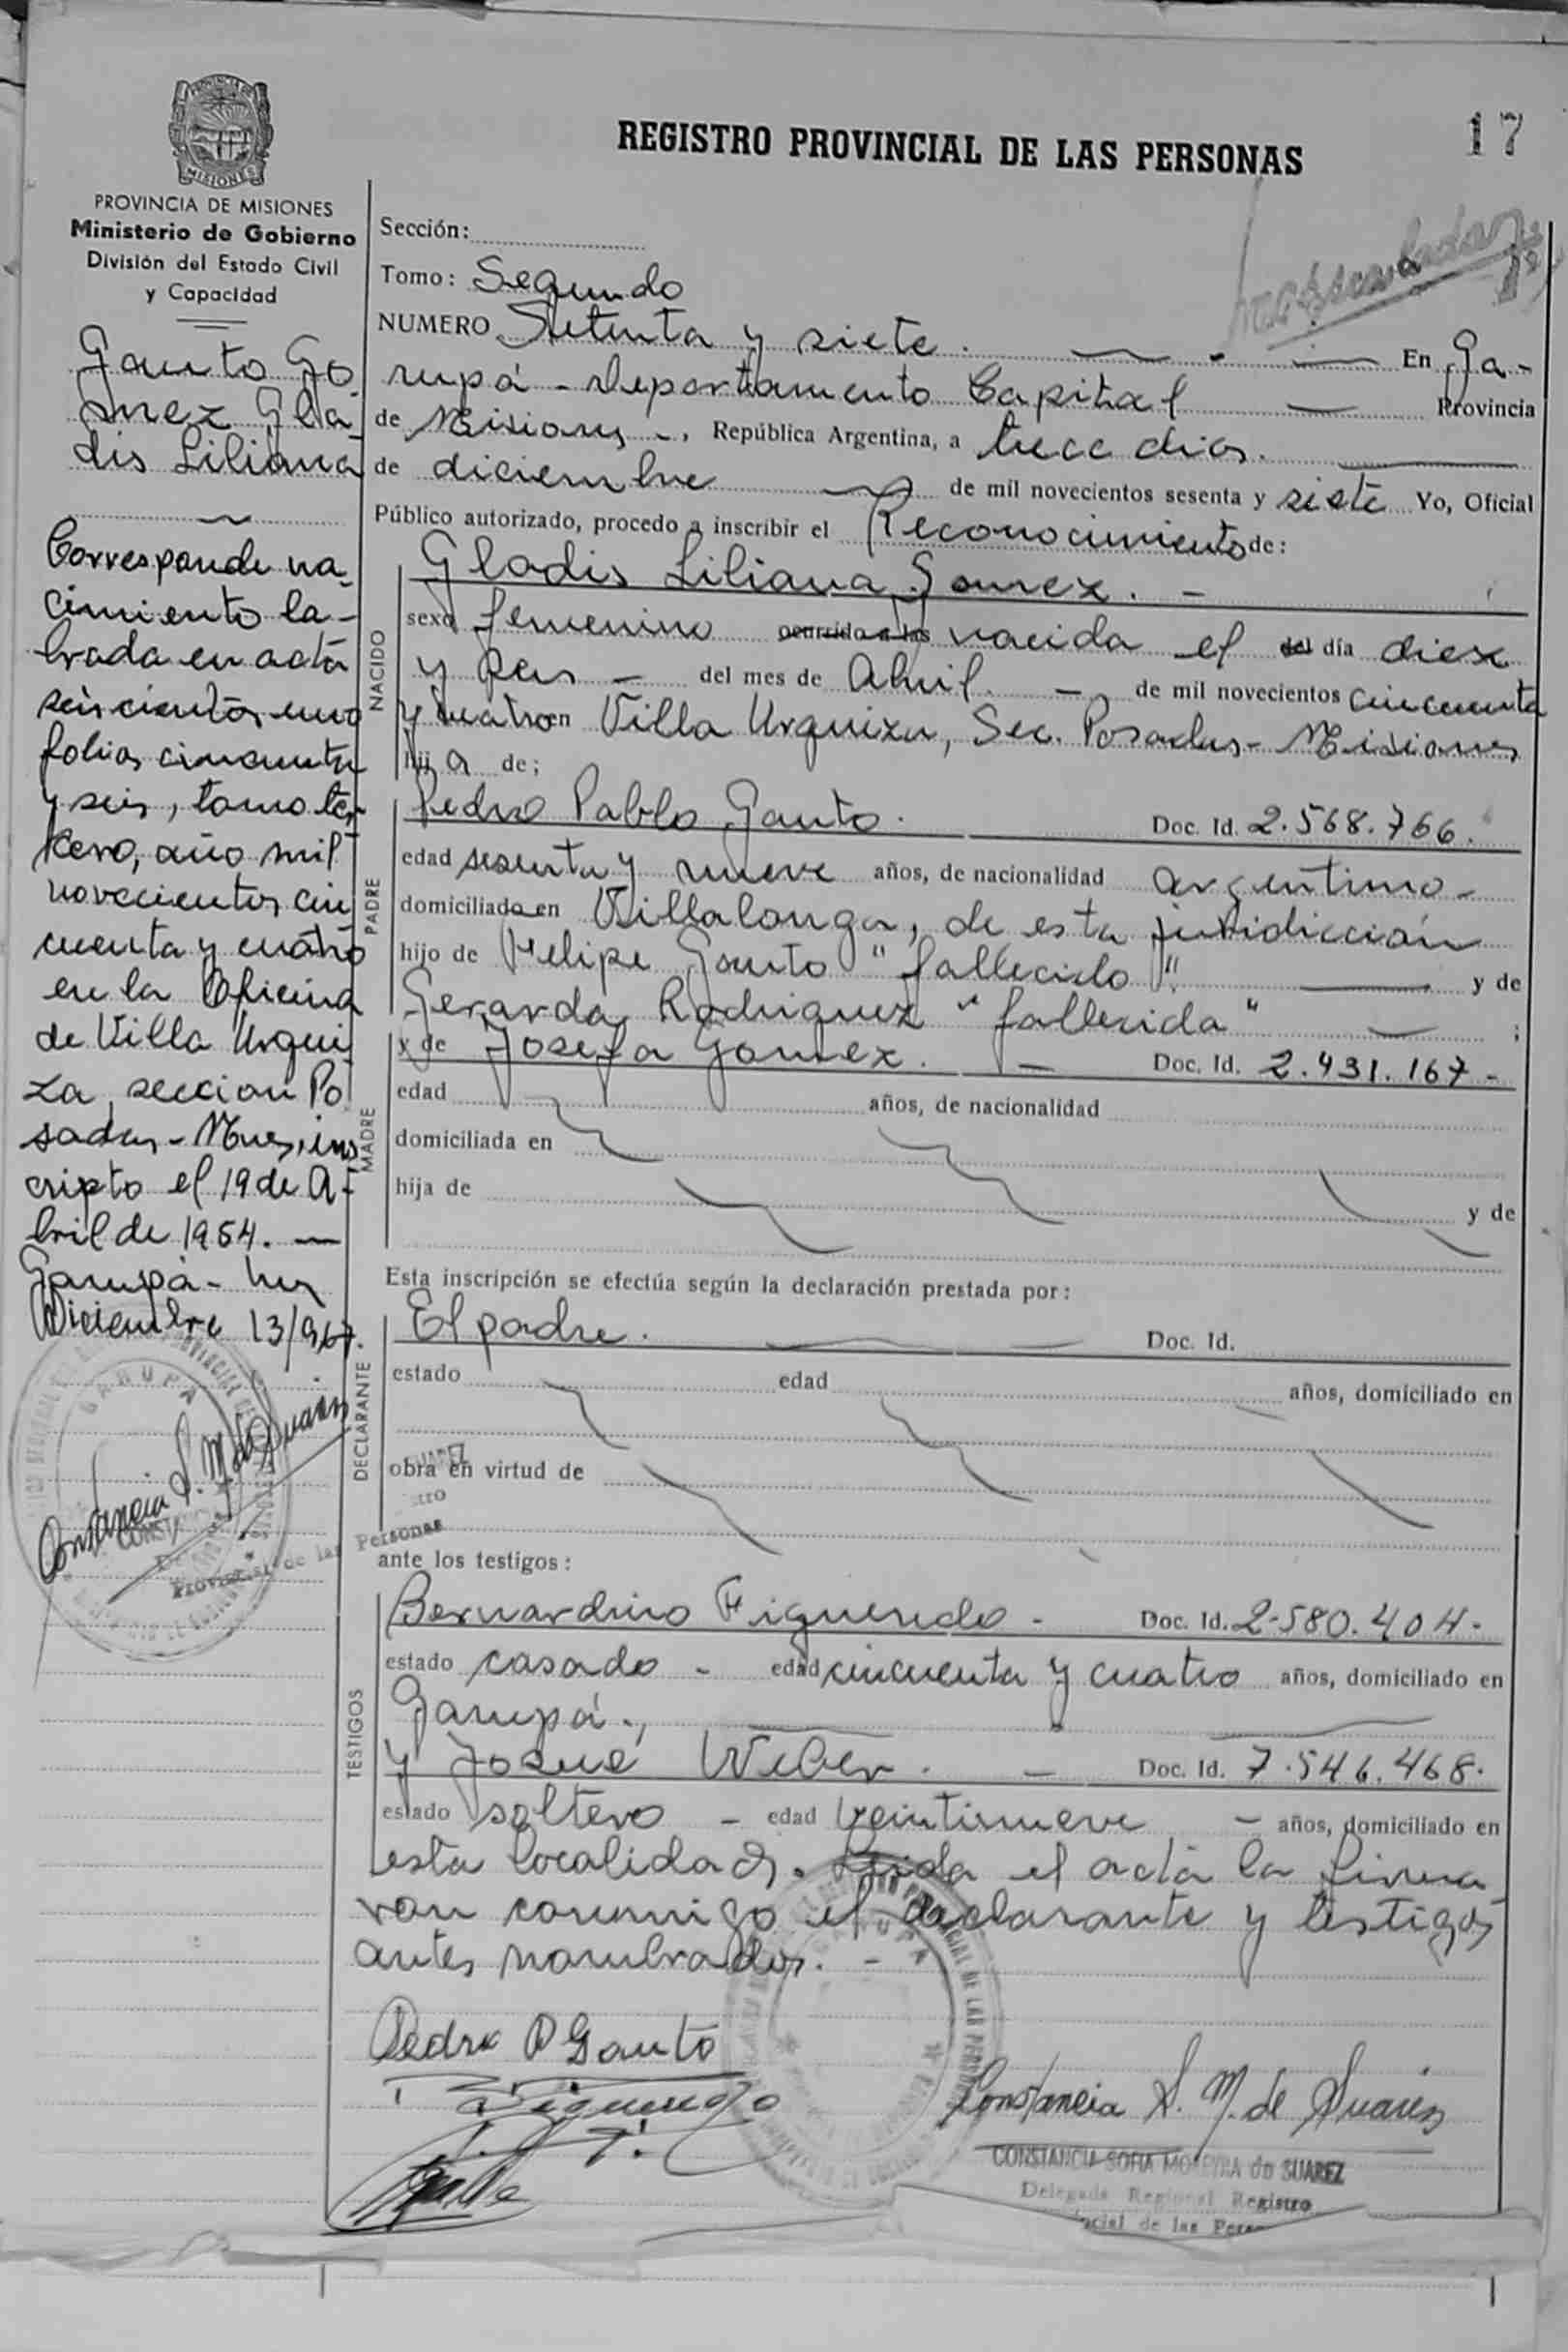 17
REGISTRO PROVINCIAL DE LAS PERSONAS
PROVINCIA DE MISIONES
Ministerio de Gobierno
División del Estado Civil
y Capacidad
Gauto Go
mez Gla-
dis Liliana
Corresponde na-
cimiento la-
brada en acta
seiscientos uno
folios cincuenta
y seis, tomo ter-
cero, año mil
novecientos cin
cuenta y cuatro
en la Oficina
de Villa Urqui
za, seccion Po
sadas - Mnes, ins
cripto el 19 de A-
bril de 1954. —
Garupá - Mnes
Diciembre 13/967.
Constancia S. M. de Suarez
Sección:
Tomo: Segundo
NUMERO Setenta y siete. — - — En Ga-
rupá - Departamento Capital — Provincia
de Misiones -, República Argentina, a trece dias. —
de diciembre — de mil novecientos sesenta y siete Yo, Oficial
Público autorizado, procedo a inscribir el Reconocimiento de:
NACIDO
Gladis Liliana Gomez. -
sexo femenino ocurrido a las nacida el del día diez
y seis - del mes de Abril. - de mil novecientos cincuenta
y cuatro en Villa Urquiza, Sec. Posadas - Misiones
hij a de;
PADRE
Pedro Pablo Gauto. Doc. Id. 2.568.766.
edad sesenta y nueve años, de nacionalidad argentino -
domiciliado en Villalonga, de esta juridiccion
hijo de Felipe Gauto "fallecido" — y de
Gerarda Rodriguez "fallecida" — ;
MADRE
y de Josefa Gomez. — Doc. Id. 2.431.167 -
edad años, de nacionalidad
domiciliada en
hija de y de
Esta inscripción se efectúa según la declaración prestada por:
DECLARANTE
El padre. — Doc. Id.
estado edad años, domiciliado en
obra en virtud de
ante los testigos:
TESTIGOS
Bernardino Figueredo - Doc. Id. 2.580.404 -
estado casado - edad cincuenta y cuatro años, domiciliado en
Garupá.,
y Josué Weber. — Doc. Id. 7.546.468.
estado soltero - edad veintinueve - años, domiciliado en
esta localidad. Leida el acta la firma-
ron conmigo el declarante y testigos
antes nombrados. -
Pedro P Gauto
B Figueredo
Constancia S. M. de Suarez
CONSTANCIA SOFIA MOREYRA de SUAREZ
Delegada Regional Registro